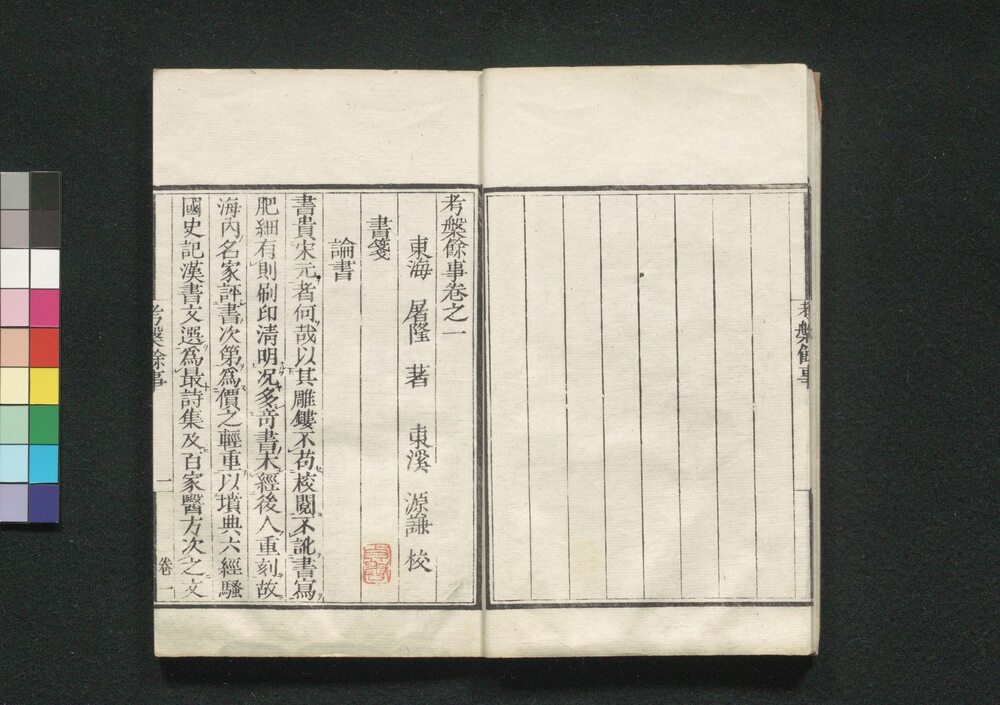 考槃餘事
考槃餘事卷之一
東海 屠隆 著 東溪 源謙 校
書箋
論書
書貴宋元者何哉以其雕鏤不苟校閱不訛書寫
肥細有則刷印清明况多奇書未經後人重刻故
海內名家評書次第爲價之輕重以墳典六經騷
國史記漢書文選爲最詩集及百家醫方次之文
考槃餘事 一 卷一